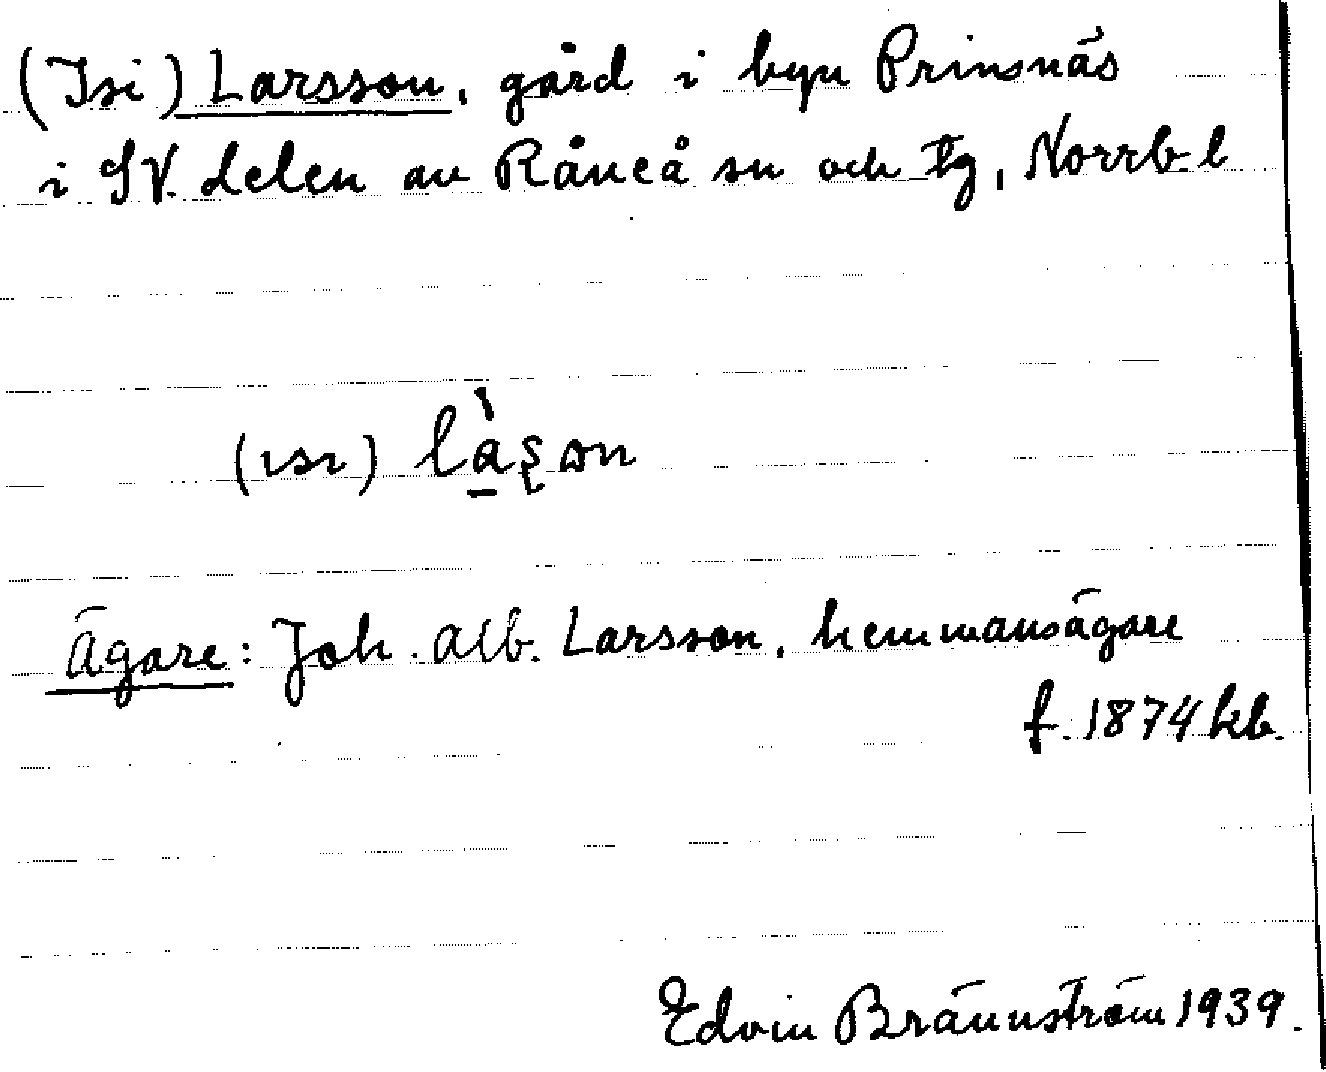 (Isi) Larsson, gård i byn Prinsnäs
i SV. delen av Råneå sn och tg, Norrb. l
(ısı) là̱ʂɷn
Ägare: Joh. Alb. Larsson, hemmansägare
f. 1874 kb.
Edvin Brännström 1939.